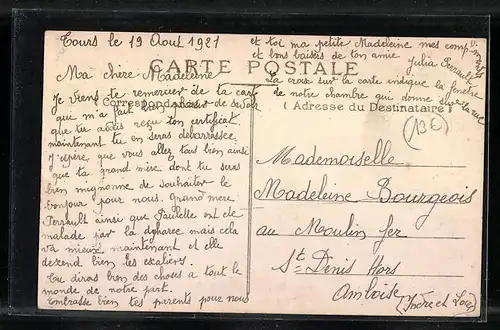 Tours le 19 Aout 1921
CARTE POSTALE
Correspondance
Ma chère Madeleine
Je viens te remercier de ta carte
qui m'a fait bien plaisir de savoir
que tu avais reçu ton certificat
maintenant tu en seras débarrassée
J'espère que vous allez tous bien ainsi
que ta grand mère dont tu seras
bien mignonne de souhaiter le
bonjour pour nous. Grand mère
Perrault ainsi que Paulette est
malade par la mais cela
va mieux maintenant et elle
descend bien les escaliers.
Tu diras bien des choses a tout le
monde de notre part.
Embrasse bien tes parents pour nous
et toi ma petite Madeleine mes compliments
et bons baisers de ton amie
Julia Perrault
La croix sur la carte indique la fenetre
de notre chambre qui donne sur la rue
(Adresse du Destinataire)
(13€)
Mademoiselle
Madeleine Bourgeois
au Moulin fer
St Denis Hors
Amboise
(Indre et Loire)